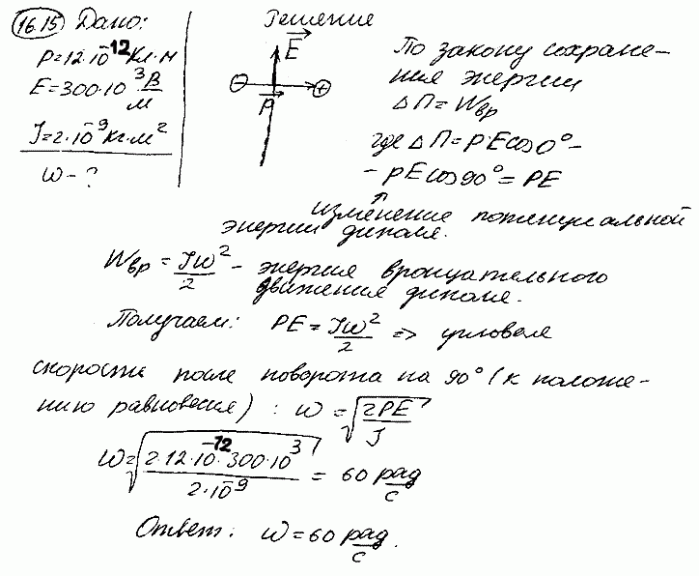 16.15 Дано:
Решение
p=12·10⁻¹² Кл·м
E=300·10³ В/м
J=2·10⁻⁹ кг·м²
ω - ?
E
p
По закону сохране-
ния энергии
ΔП=Wвр
где ΔП=pEcos0°-
-pEcos90°=PE
изменение потенциальной
энергии диполя.
Wвр = Jω²/2 - энергия вращательного
движения диполя.
Получаем: PE=Jω²/2 => угловая
скорости после поворота на 90° (к положе-
нию равновесия): ω=√(2PE/J)
ω=√(2·12·10⁻¹²·300·10³/2·10⁻⁹) = 60 рад/с
Ответ: ω=60 рад/с.